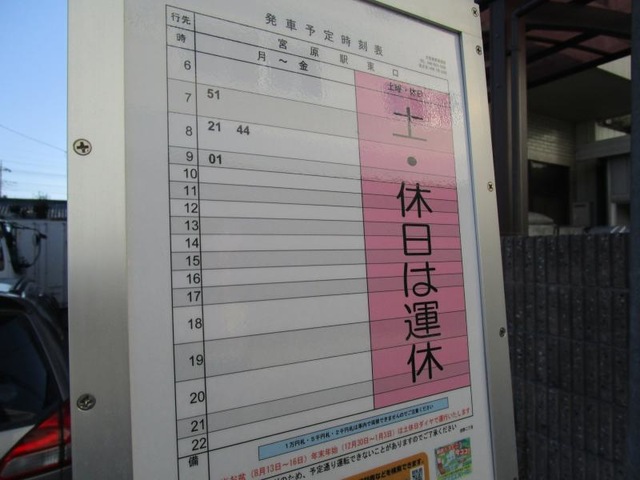 発車予定時刻表
行先
宮原駅東口
時
月～金
土曜・休日
6
7 51
8 21 44
9 01
10
11
12
13
14
15
16
17
18
19
20
21
22
備
土・休日は運休
1万円札・5千円札・2千円札は車内で両替できませんのでご注意ください
(8月13日～16日) 年末年始 (12月30日～1月3日) は土休日ダイヤで運行いたします
のため、予定通り運転できないことがありますのでご了承ください